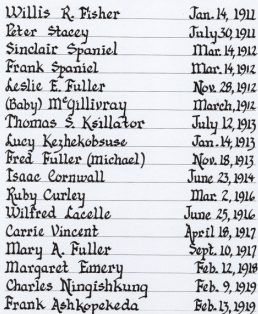 Willis R. Fisher Jan. 14, 1911
Peter Stacey July 30, 1911
Sinclair Spaniel Mar. 14, 1912
Frank Spaniel Mar. 14, 1912
Leslie E. Fuller Nov. 28, 1912
(Baby) McGillivray March, 1912
Thomas S. Ksillator July 12, 1913
Lucy Kezhekobsuse Jan. 14, 1913
Fred Fuller (michael) Nov. 18, 1913
Isaac Cornwall June 23, 1914
Ruby Curley Mar. 2, 1916
Wilfred Lacelle June 25, 1916
Carrie Vincent April 18, 1917
Mary A. Fuller Sept. 10, 1917
Margaret Emery Feb. 12, 1918
Charles Ningishkung Feb. 9, 1919
Frank Ashkopekeda Feb. 13, 1919